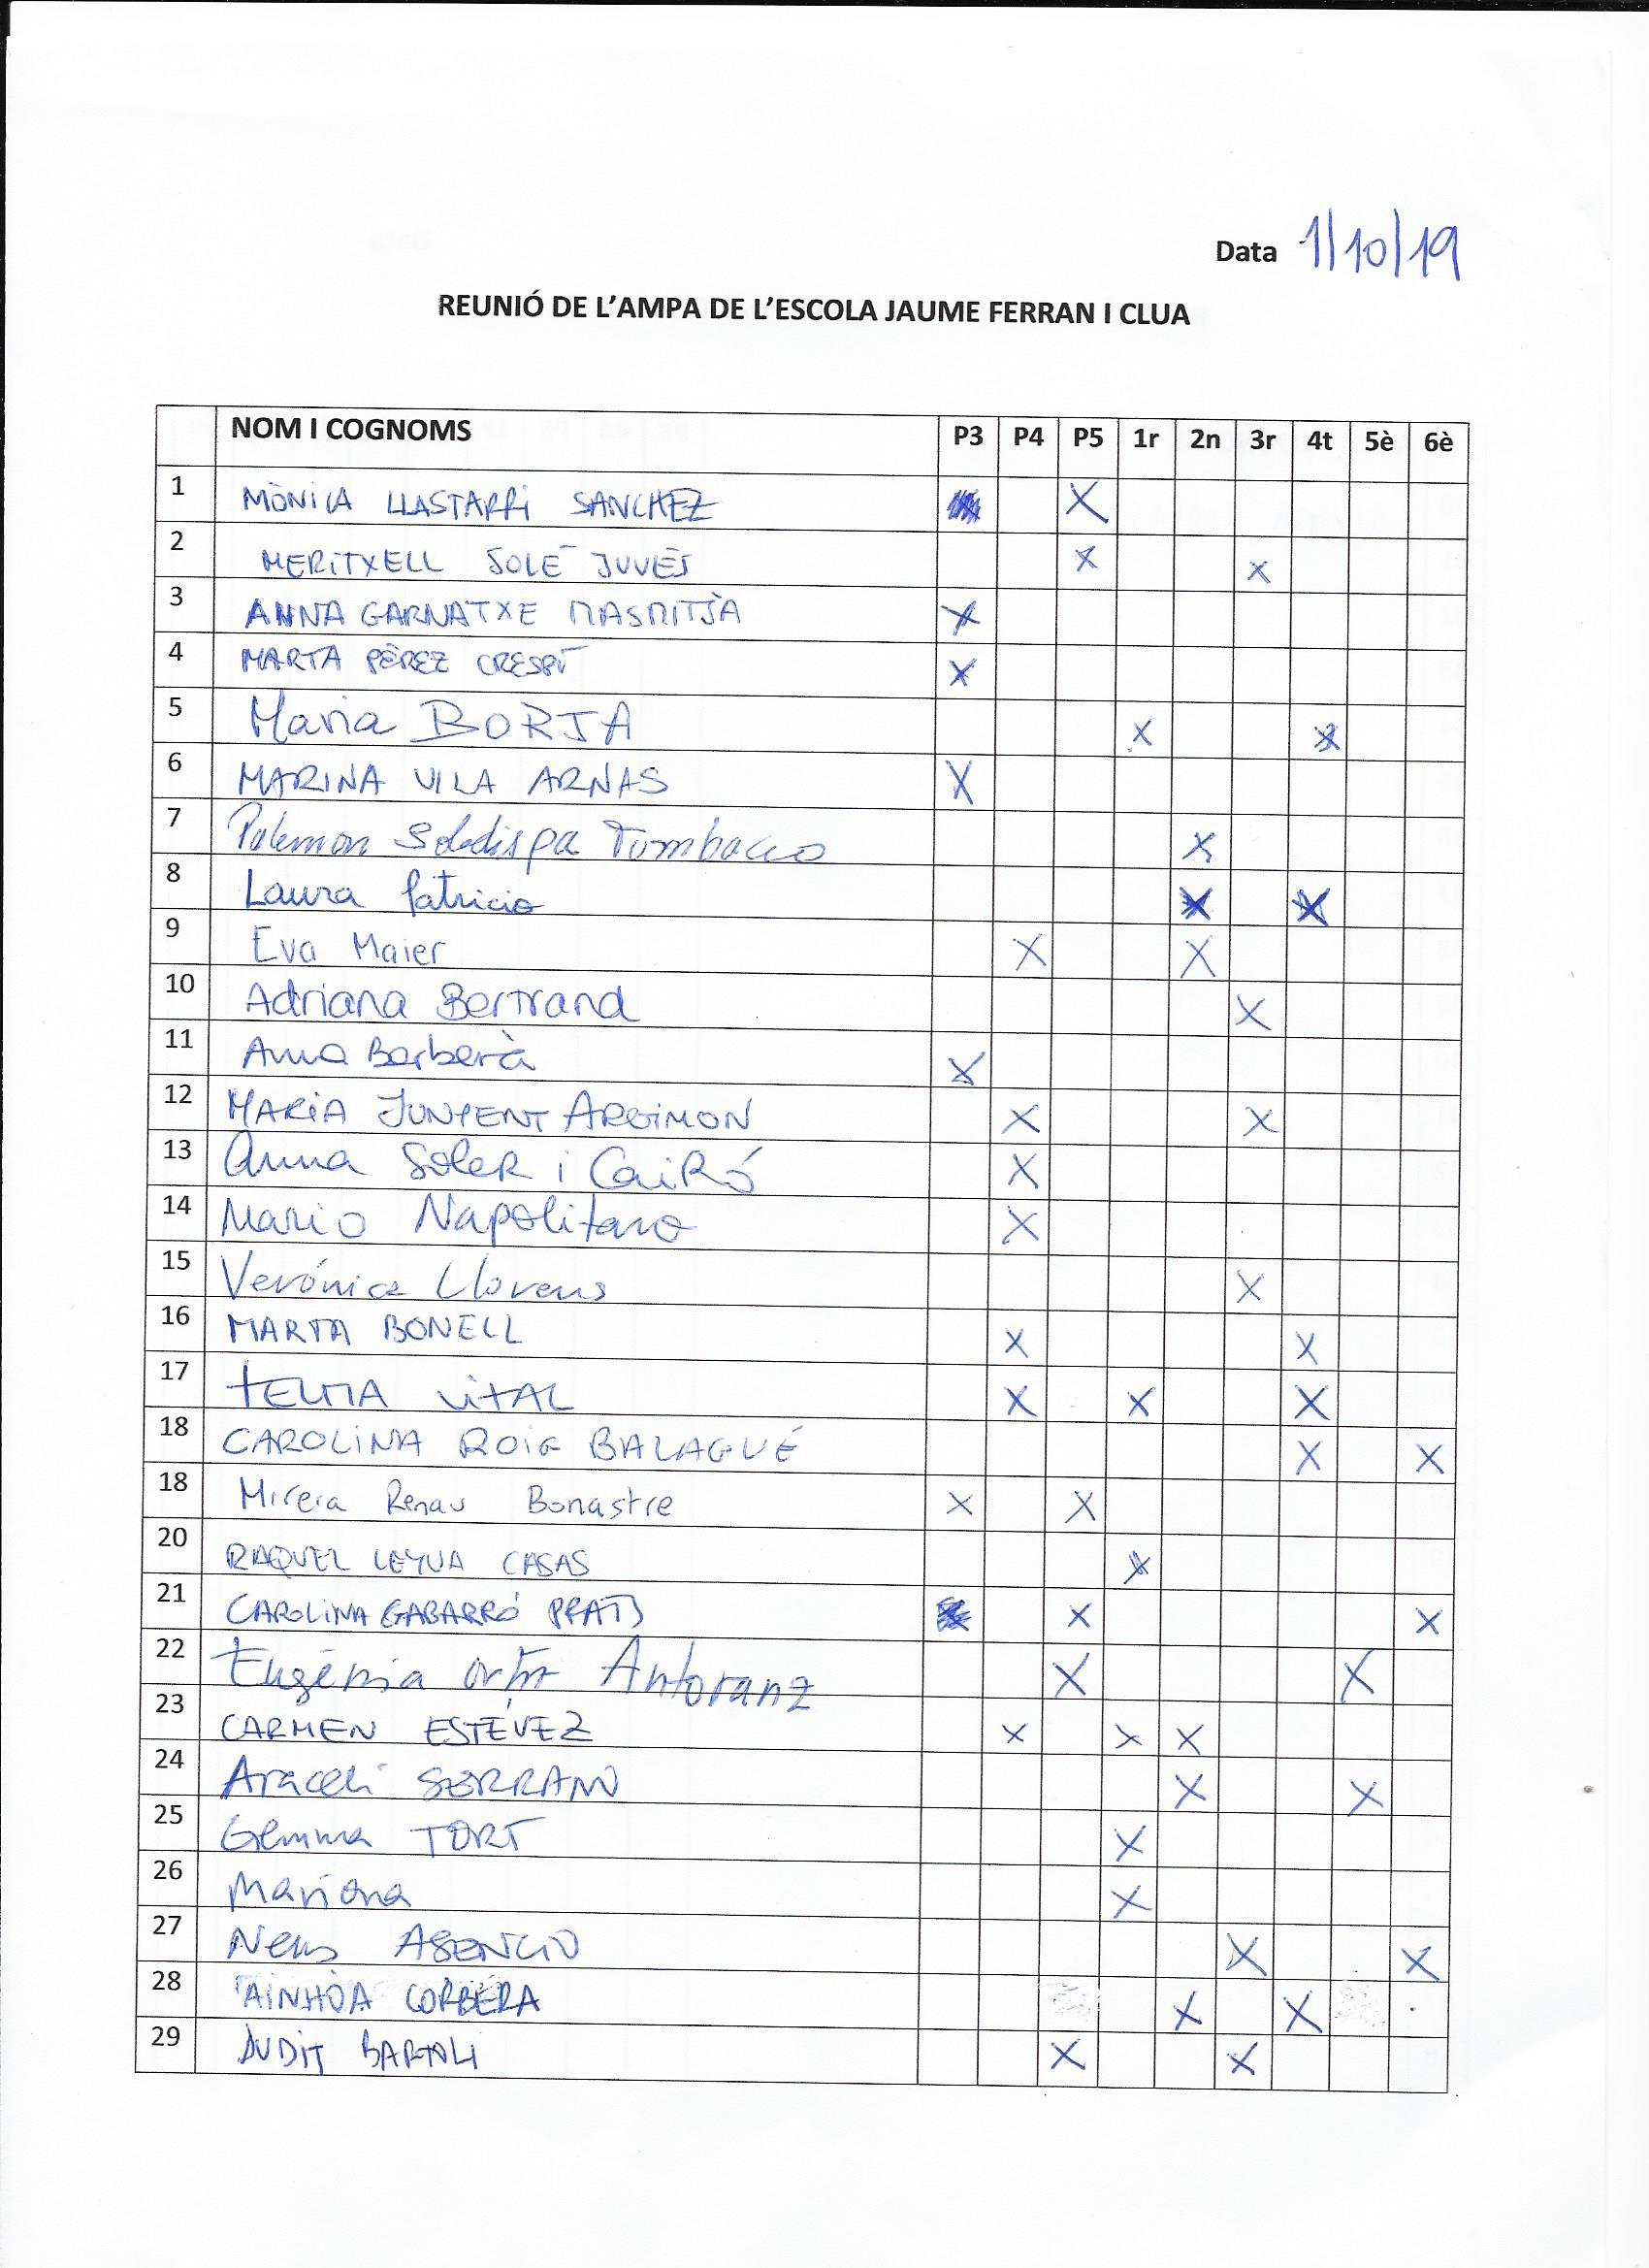 Data 1/10/19
REUNIÓ DE L'AMPA DE L'ESCOLA JAUME FERRAN I CLUA
NOM I COGNOMS P3 P4 P5 1r 2n 3r 4t 5è 6è
1 MÒNICA SANCHEZ X
2 MERITXELL SOLÉ JUVÉS X X
3 ANNA GARNATXE MASMITJÀ X
4 MARTA PÉREZ X
5 Maria BORJA X X
6 MARINA VILA ARNAS X
7 Polemon X
8 Laura Patricio X X
9 Eva Maier X X
10 Adriana Bertrand X
11 Anna Barberà X
12 MARIA JUNYENT ARGIMON X X
13 Anna SOLER i CAIRÓ X
14 Mario Napolitano X
15 Verónica Llorens X
16 MARTA BONELL X X
17 TELMA VITAL X X X
18 CAROLINA ROIG BALAGUÉ X X
18 Mireia Renau Bonastre X X
20 RAQUEL LEYVA CASAS X
21 CAROLINA GABARRÓ PRATS X X
22 Eugènia Antoranz X X
23 CARMEN ESTÉVEZ X X X
24 Araceli SERRANO X X
25 Gemma TORT X
26 Mariona X
27 Neus ASENCIO X X
28 AINHOA CORBERA X X
29 JUDIT BARTOLI X X